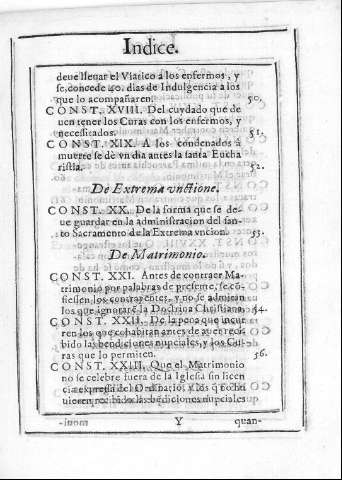 Indice.
deue lleuar el Viatico a los enfermos, y
se concede 40. dias de Indulgencia a los
que lo acompañaren. 50,
CONST. XVIII. Del cuydado que de
uen tener los Curas con los enfermos, y
necessitados. 51.
CONST. XIX. A los condenados à
muerte se de vn dia antes la santa Eucha
ristia. 52.
De Extrema vnctione.
CONST. XX. De la forma que se de-
ue guardar en la administracion del san-
to Sacramento de la Extrema vncion. 53.
De Matrimonio.
CONST. XXI. Antes de contraer Ma-
trimonio por palabras de presente, se cō-
fiessen los contrayentes, y no se admitan
los que ignorarē la Doctrina Christiana, 54.
CONST. XXII. De la pena que incur
ren los que cohabitan antes de auer reci
bido las bendiciones nupciales, y los Cu-
ras que lo permiten. 56.
CONST. XXIII, Que el Matrimonio
no se celebre fuera de la Iglesia sin licen
cia expressa del Ordinario, y los q
uieren recibido las bēdiciones nupciales
Y quan-